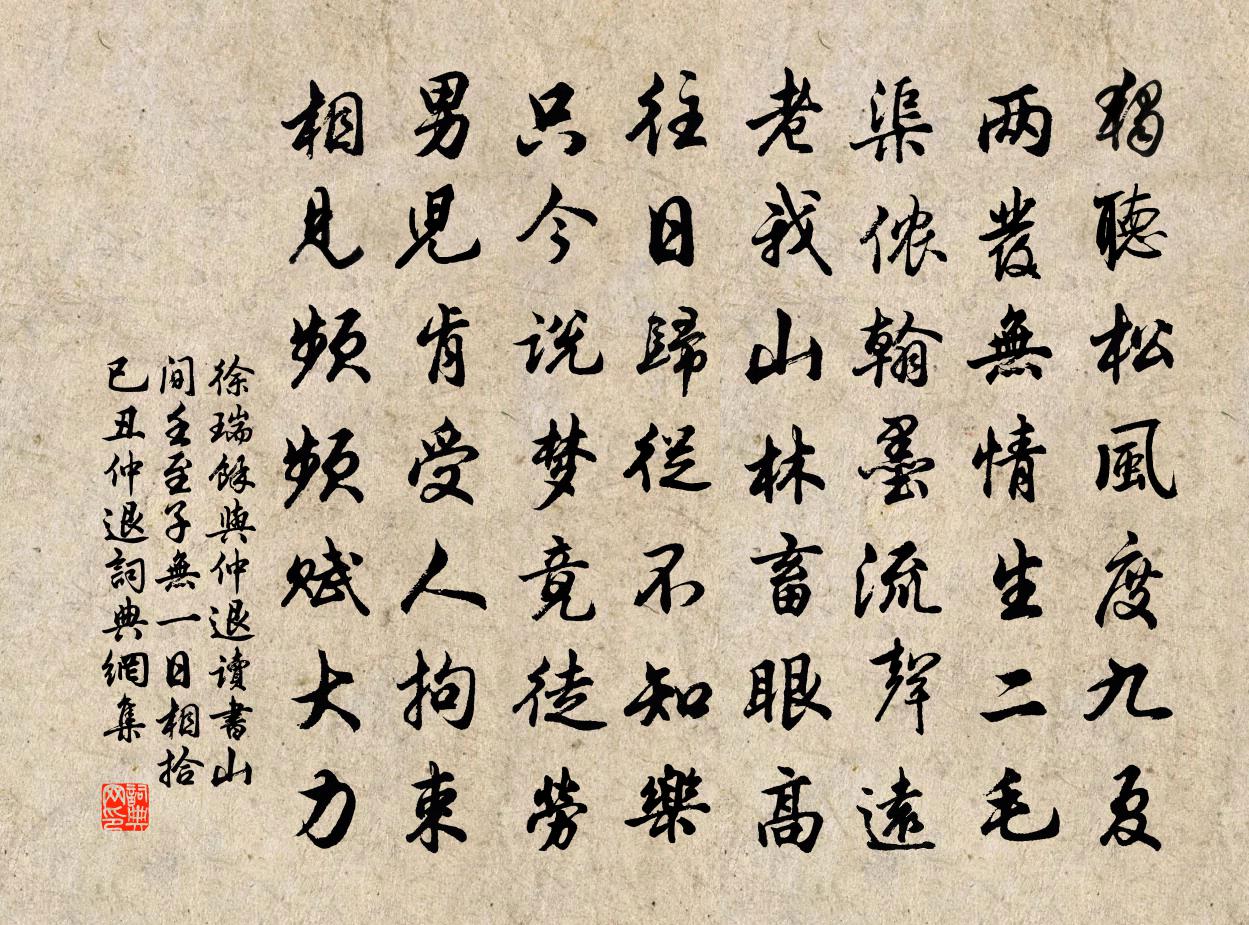 獨聽松風度九夏
两發無情生二毛
渠侬翰墨流聲遠
老我山林畜眼高
往日歸從不知樂
只今説梦竟徒勞
男兒肯受人拘束
相見頻頻賦大力
徐瑞餘與仲退讀書山
間壬至子無一日相拾
已丑仲退詞典網集
詞典网印